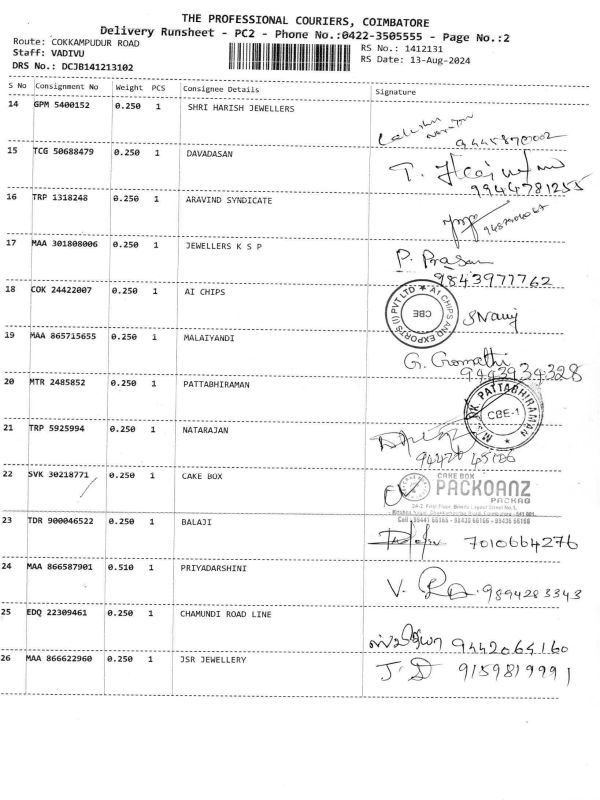 THE PROFESSIONAL COURIERS, COIMBATORE
Delivery Runsheet - PC2 - Phone No.:0422-3505555 - Page No.:2
Route: COKKAMPUDUR ROAD
RS No.: 1412131
Staff: VADIVU
RS Date: 13-Aug-2024
DRS No.: DCJB141213102
S No Consignment No Weight PCS Consignee Details Signature
14 GPM 5400152 0.250 1 SHRI HARISH JEWELLERS
15 TCG 50688479 0.250 1 DAVADASAN
9944781255
16 TRP 1318248 0.250 1 ARAVIND SYNDICATE
17 MAA 301808006 0.250 1 JEWELLERS K S P P. Prasan
9843977762
18 COK 24422007 0.250 1 AI CHIPS
A1 CHIPS AND EXPORTS (I) PVT LTD ★ CBE
19 MAA 865715655 0.250 1 MALAIYANDI G. Gomathi
9443934328
20 MTR 2485852 0.250 1 PATTABHIRAMAN
PATTABHIRAMAN CBE-1
21 TRP 5925994 0.250 1 NATARAJAN
22 SVK 30218771 0.250 1 CAKE BOX
CAKE BOX
PACKOANZ
PACKAG
Call : 99441 66166 - 98430 66166 - 98436 66166
23 TDR 900046522 0.250 1 BALAJI 7010664276
24 MAA 866587901 0.510 1 PRIYADARSHINI
V. 9894283343
25 EDQ 22309461 0.250 1 CHAMUNDI ROAD LINE
9442064160
26 MAA 866622960 0.250 1 JSR JEWELLERY J. D 9159819991